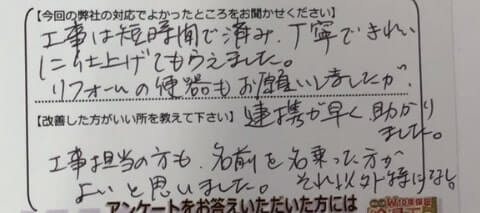 【今回の弊社の対応でよかったところをお聞かせください】
工事は短時間で済み、丁寧できれい
に仕上げてもらえました。
リフォームの便器もお願いしましたが、
連携が早く助かり
ました。
【改善した方がいい所を教えて下さい】
工事担当の方も、名前を名乗った方が
よいと思いました。それ以外特になし。
アンケートをお答えいただいた方には
W10年保証